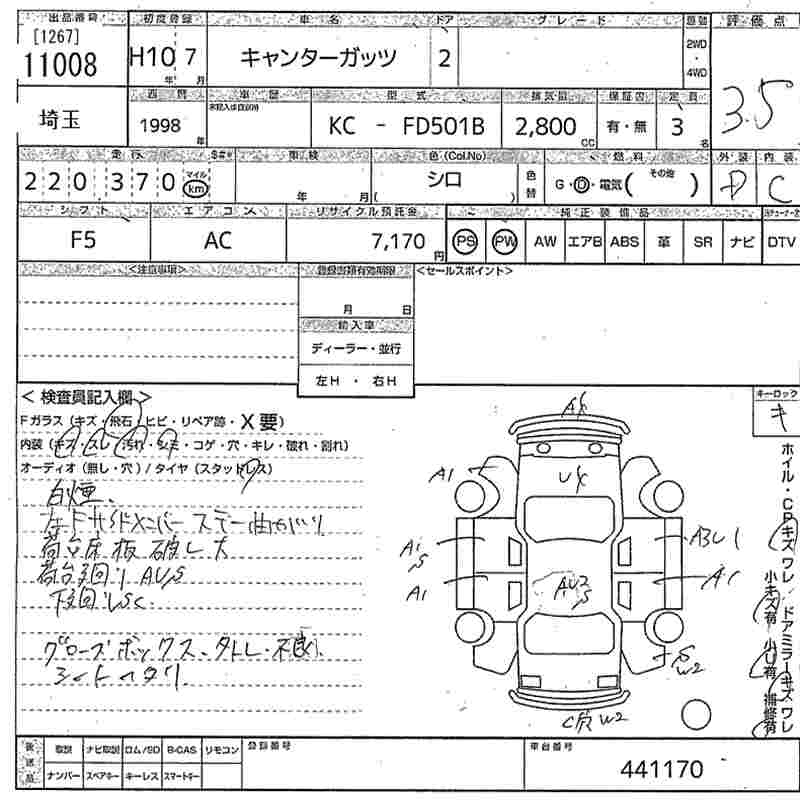 出品番号 初度登録 車名 ドア グレード 駆動 評価点
[1267]
11008 H10 年 7 月 キャンターガッツ 2 2WD ・ 4WD 3.5
西暦 車歴 型式 排気量 保証書 定員
埼玉 1998 年 KC - FD501B 2,800 CC 有・無 3 名
走行 $#* 車検 色(Col.No) 燃料 外装 内装
220,370 マイル km 年 月 シロ ( ) 色替 G・D・電気 ( その他 ) D C
シフト エアコン リサイクル預託金 純正装備品
F5 AC 7,170 円 PS PW AW エアB ABS 革 SR ナビ DTV
<注意事項> 登録書類有効期限 <セールスポイント>
月 日
輸入車
ディーラー・並行
左H ・ 右H
< 検査員記入欄 > キーロック
Fガラス (キズ・飛石・ヒビ・リペア跡・X要) キ
内装 (キズ・スレ・汚れ・シミ・コゲ・穴・キレ・破れ・割れ)
オーディオ (無し・穴) / タイヤ (スタッドレス)
白煙、
左FサイドメンバーステーAがり
荷台床板破レ大
荷台廻り AUS
下廻り USC
グローブボックス、タトレ不良
シートヘタリ
A1
A1
S
A1
U
A1
AU2
S
S
W2
W2
ホイル・CPキズワレ ドアミラーキズワレ
小キズ有 小U有 補修有
後送品 取説 ナビ取説 ロム/SD B-CAS リモコン 登録番号 車台番号
ナンバー スペアキー キーレス スマートキー 441170